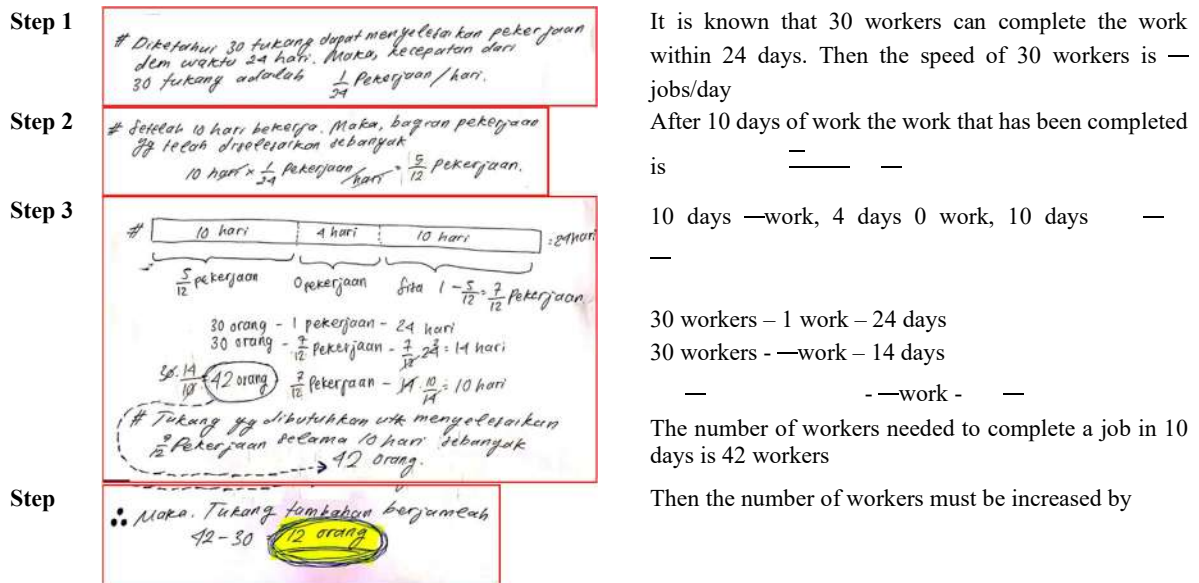 Step 1
# Diketahui 30 tukang dapat menyelesaikan pekerjaan
dlm waktu 24 hari. Maka, kecepatan dari
30 tukang adalah 1/24 Pekerjaan/hari.
It is known that 30 workers can complete the work
within 24 days. Then the speed of 30 workers is —
jobs/day
Step 2
# Setelah 10 hari bekerja. Maka, bagian pekerjaan
yg telah diselesaikan sebanyak
10 hari × 1/24 Pekerjaan/hari = 5/12 Pekerjaan.
After 10 days of work the work that has been completed
is
Step 3
# 10 hari 4 hari 10 hari = 24 hari
5/12 pekerjaan 0 pekerjaan Sisa 1 - 5/12 = 7/12 Pekerjaan.
30 orang - 1 pekerjaan - 24 hari
30 orang - 7/12 Pekerjaan - 7/12 . 24 = 14 hari
30 . 14/10 = 42 orang 7/12 Pekerjaan - 14 . 10/14 = 10 hari
# Tukang yg dibutuhkan utk menyelesaikan
7/12 Pekerjaan selama 10 hari sebanyak
42 orang.
10 days —work, 4 days 0 work, 10 days —
—
30 workers – 1 work – 24 days
30 workers - —work – 14 days
— - —work - —
The number of workers needed to complete a job in 10
days is 42 workers
Step
∴ Maka. Tukang tambahan berjumlah
42 - 30 = 12 orang
Then the number of workers must be increased by